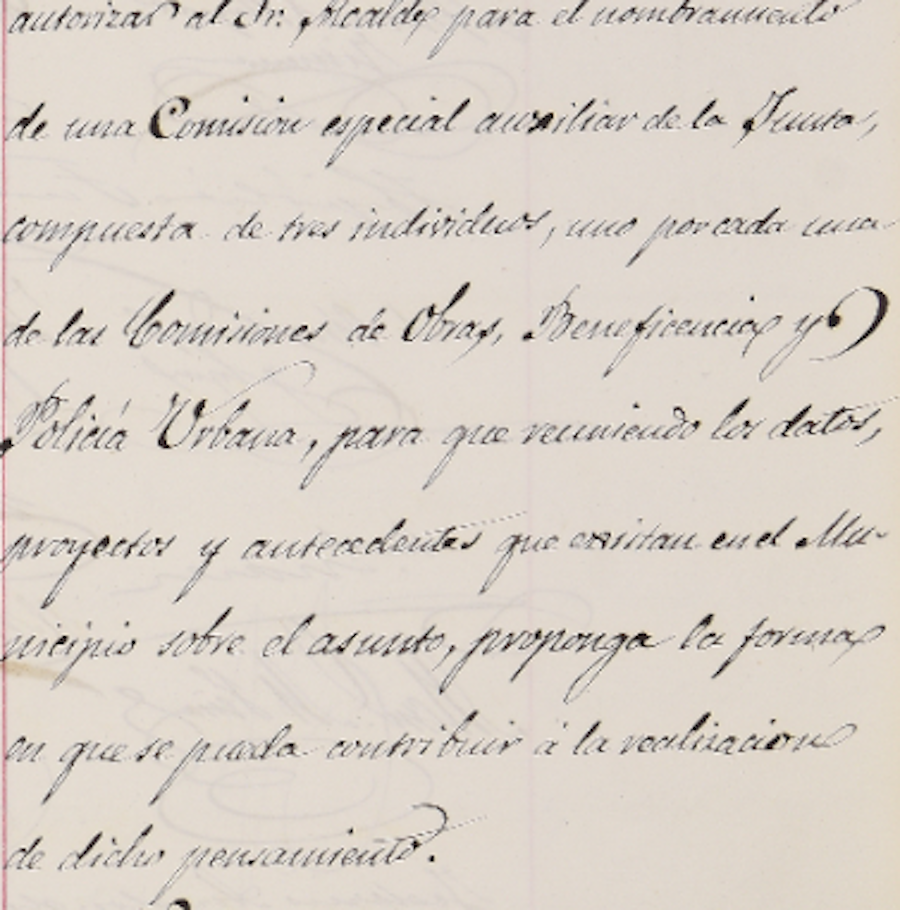 autorizar al Sr. Alcalde para el nombramiento
de una Comision especial auxiliar de la Junta,
compuesta de tres individuos, uno por cada una
de las Comisiones de Obras, Beneficencia y
Policía Urbana, para que reuniendo los datos,
proyectos y antecedentes que existan en el Mu-
nicipio sobre el asunto, proponga la forma
en que se pueda contribuir á la realizacion
de dicho pensamiento.